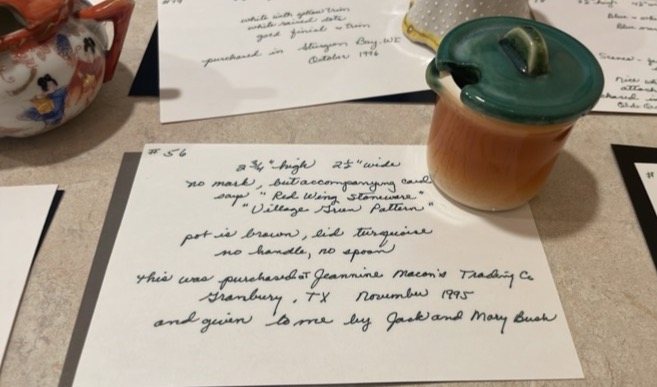 white with yellow trim
white raised dots
gold finial + trim
purchased in Sturgeon Bay, WI
October 1996
# 56
2 3/4" high 2 1/2" wide
no mark, but accompanying card
says "Red Wing Stoneware"
"Village Green Pattern"
pot is brown, lid turquoise
no handle, no spoon
this was purchased at Jeannine Macon's Trading Co
Granbury, TX November 1995
and given to me by Jack and Mary Bush
high
Blue
Nice
#